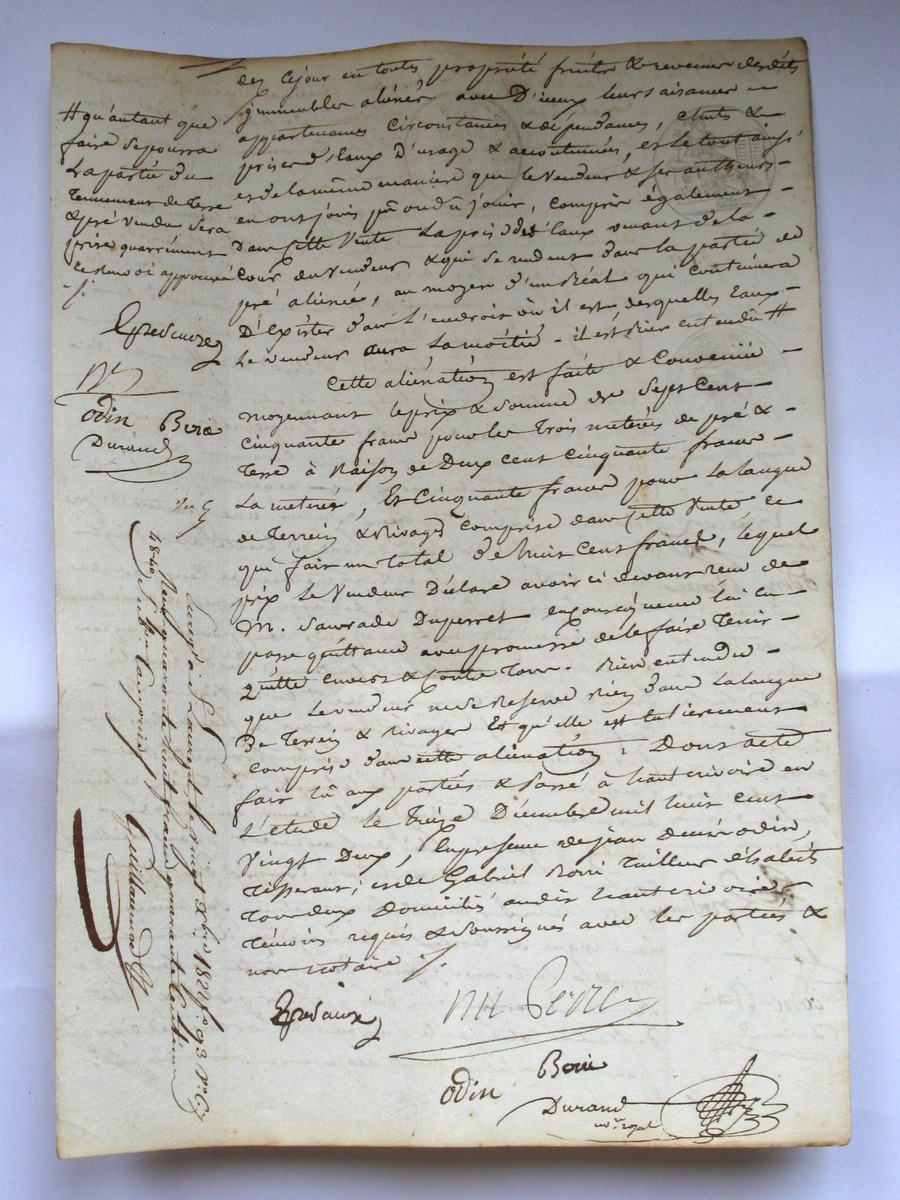 des cejour en toutes propriété fruits & revenus desdits
jmmeubles aliénés avec D'iceux leurs aisances
appartenances Circonstances & dépendances, chuts &
prises d'Eaux D'usage & accoutumées, et le tout ainsi
et de la même manière que le Vendeur & ses autheurs
en ont joüis pû ou dû joüir, Compris également
Dans cette Vente La prise des Eaux venant de la
Cour du Vendeur & qui se rendent dans la partie de
pré aliénée, au moyen d'un Réat qui continuera
D'Exister dans l'endroit où il est desquelles Eaux
Le vendeur aura La moitié - il est Bien entendu #
Cette aliénation est faite & Convenüe
moyennant le prix & Somme de Sept Cent
Cinquante francs pour les Trois meterés de pré &
Terre à Raison de Deux Cent Cinquante francs
La meterée, Et Cinquante francs pour La langue
de Terrein & Rivages Comprise dans cette Vente, ce
qui fait un total de huit Cent francs, lequel
prix le Vendeur Déclare avoir ci devant reçu de
M. Sauvade Duperret en conséquence lui en
passe quittance avec promesse de le faire Tenir
Quitte envers & Contre Tous. Bien entendu
que le vendeur ne se Reserve Rien dans La langue
De Terrein & Rivages Et qu'elle est entièrement
Comprise dans cette aliénation : Dont acte
fait lû aux parties & Passé à hauterivoire en
L'étude le Treize Décembre mil huit cent
Vingt Deux, En présence de jean odin
Tisserant, et de Gabriel Boni Tailleur d'habits
Tous deux Domiciliés audit hauterivoire,
Témoins requis & Soussignés avec les parties &
nous notaire ./.
odin Boni
Durand
nre. royal
# qu'autant que
faire Se pourra
La partie du
Tennement de Terre
& pré Vendu Sera
prise quarrément
ce Renvoi approuvé
./.
odin Boni
Durand
Enregé à St Laurent le vingt Xbre 1822 fo 93 Vo C
Reçu quarante huit francs quarante Centimes
Subvon Compris
Guillaumot